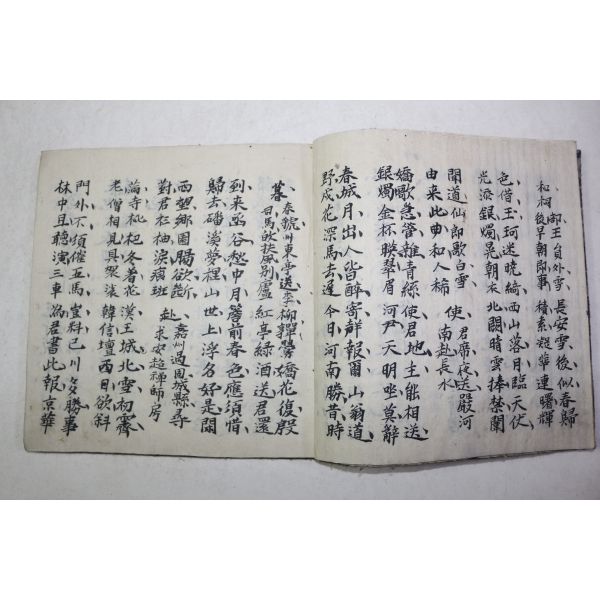 和祠部王員外雪 長安雪後似春歸
後早朝即事 積素凝華連曙輝
色借玉珂迷曉綺 西山落月臨天仗
光添銀燭晃朝衣 北闕晴雲捧禁闈
聞道仙郎歌白雪 使君席夜送嚴河
由来此曲和人稀 南赴長水
嬌歌急管雜青絲 使君地主能相送
銀燭金杯映翠眉 河尹天明坐莫辭
春城月出人皆醉 寄聲報爾山翁道
野戍花深馬去遲 今日河南勝昔時
暮春虢州東亭送李 柳嚲鶯嬌花復殷
司馬敀扶風別廬 紅亭綠酒送君還
到来函谷愁中月 簷前春色應須惜
歸去磻溪夢裡山 世上浮名好是閑
西望鄉園腸欲斷 赴嘉州過城縣尋
對君衫袖淚痕斑 求安超禪師房
滿寺枇杷冬著花 漢王城北雪初霽
老僧相見具袈裟 韓信壇西日欲斜
門外不須催五馬 豈料巴川多勝事
林中且聽演三車 為君書此報京華